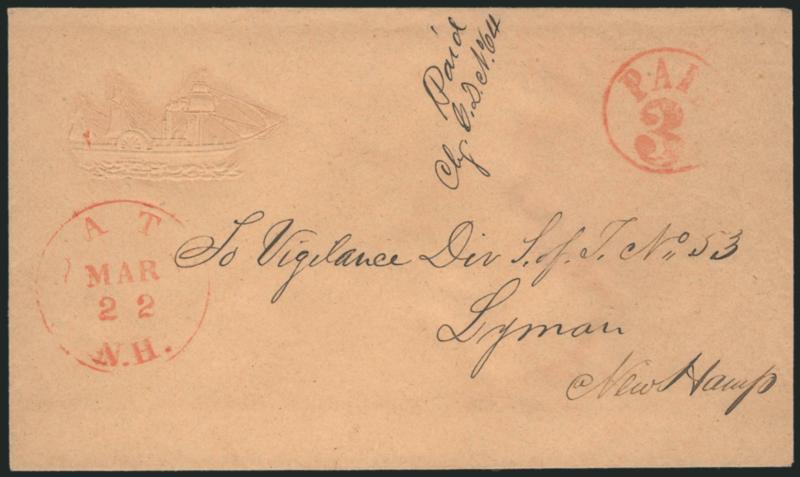 Paid
Chg C. D. No. 64
PAI
3
A T
MAR
22
N.H.
To Vigilance Div S. of T. No. 53
Lyman
New Hamp